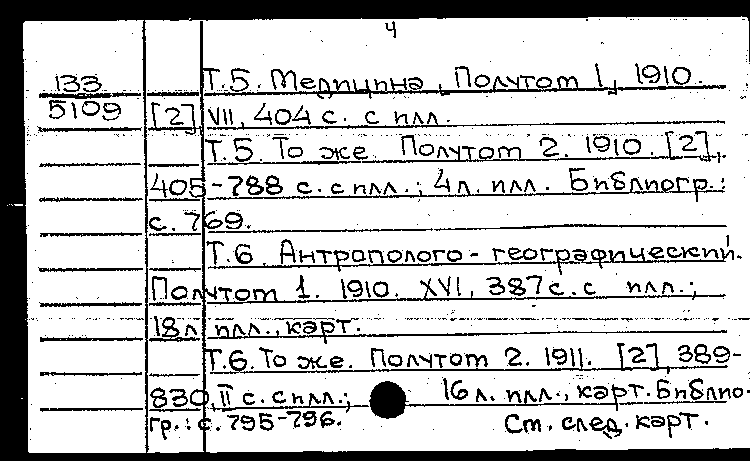 4
133 Т.5. Медицина, Полутом 1, 1910.
5109 [2], VII, 404 с. с илл.
Т.5. То же. Полутом 2. 1910. [2],
405-788 с. с илл.; 4 л. илл. Библиогр.:
с. 769.
Т.6. Антрополого-географический.
Полутом 1. 1910. XVI, 387 с. с илл.;
18 л илл., карт.
Т.6. То же. Полутом 2. 1911. [2], 389-
830, II с. с илл.; 16 л. илл., карт. Библио-
гр.: с. 795-796. См. след. карт.